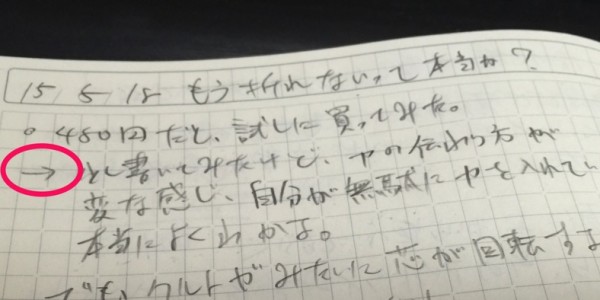 15 5 18 もう折れないって本当か?
。480円だと、試しに買ってみた。
→ とし書いてみたけど、力の伝わり方が
変な感じ、自分が無駄に力を入れてい
本当によくわかる。
でも、クルトガみたいに芯が回転するよ